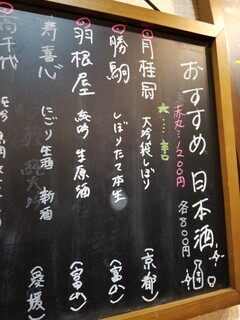 おすすめ日本酒
赤丸…1200円
各800円
大…辛口
月桂冠 大吟袋しぼり（京都）
勝駒 しぼりたて本生（富山）
羽根屋 純吟 生原酒（富山）
寿喜心 にごり生酒 新酒（愛媛）
高千代